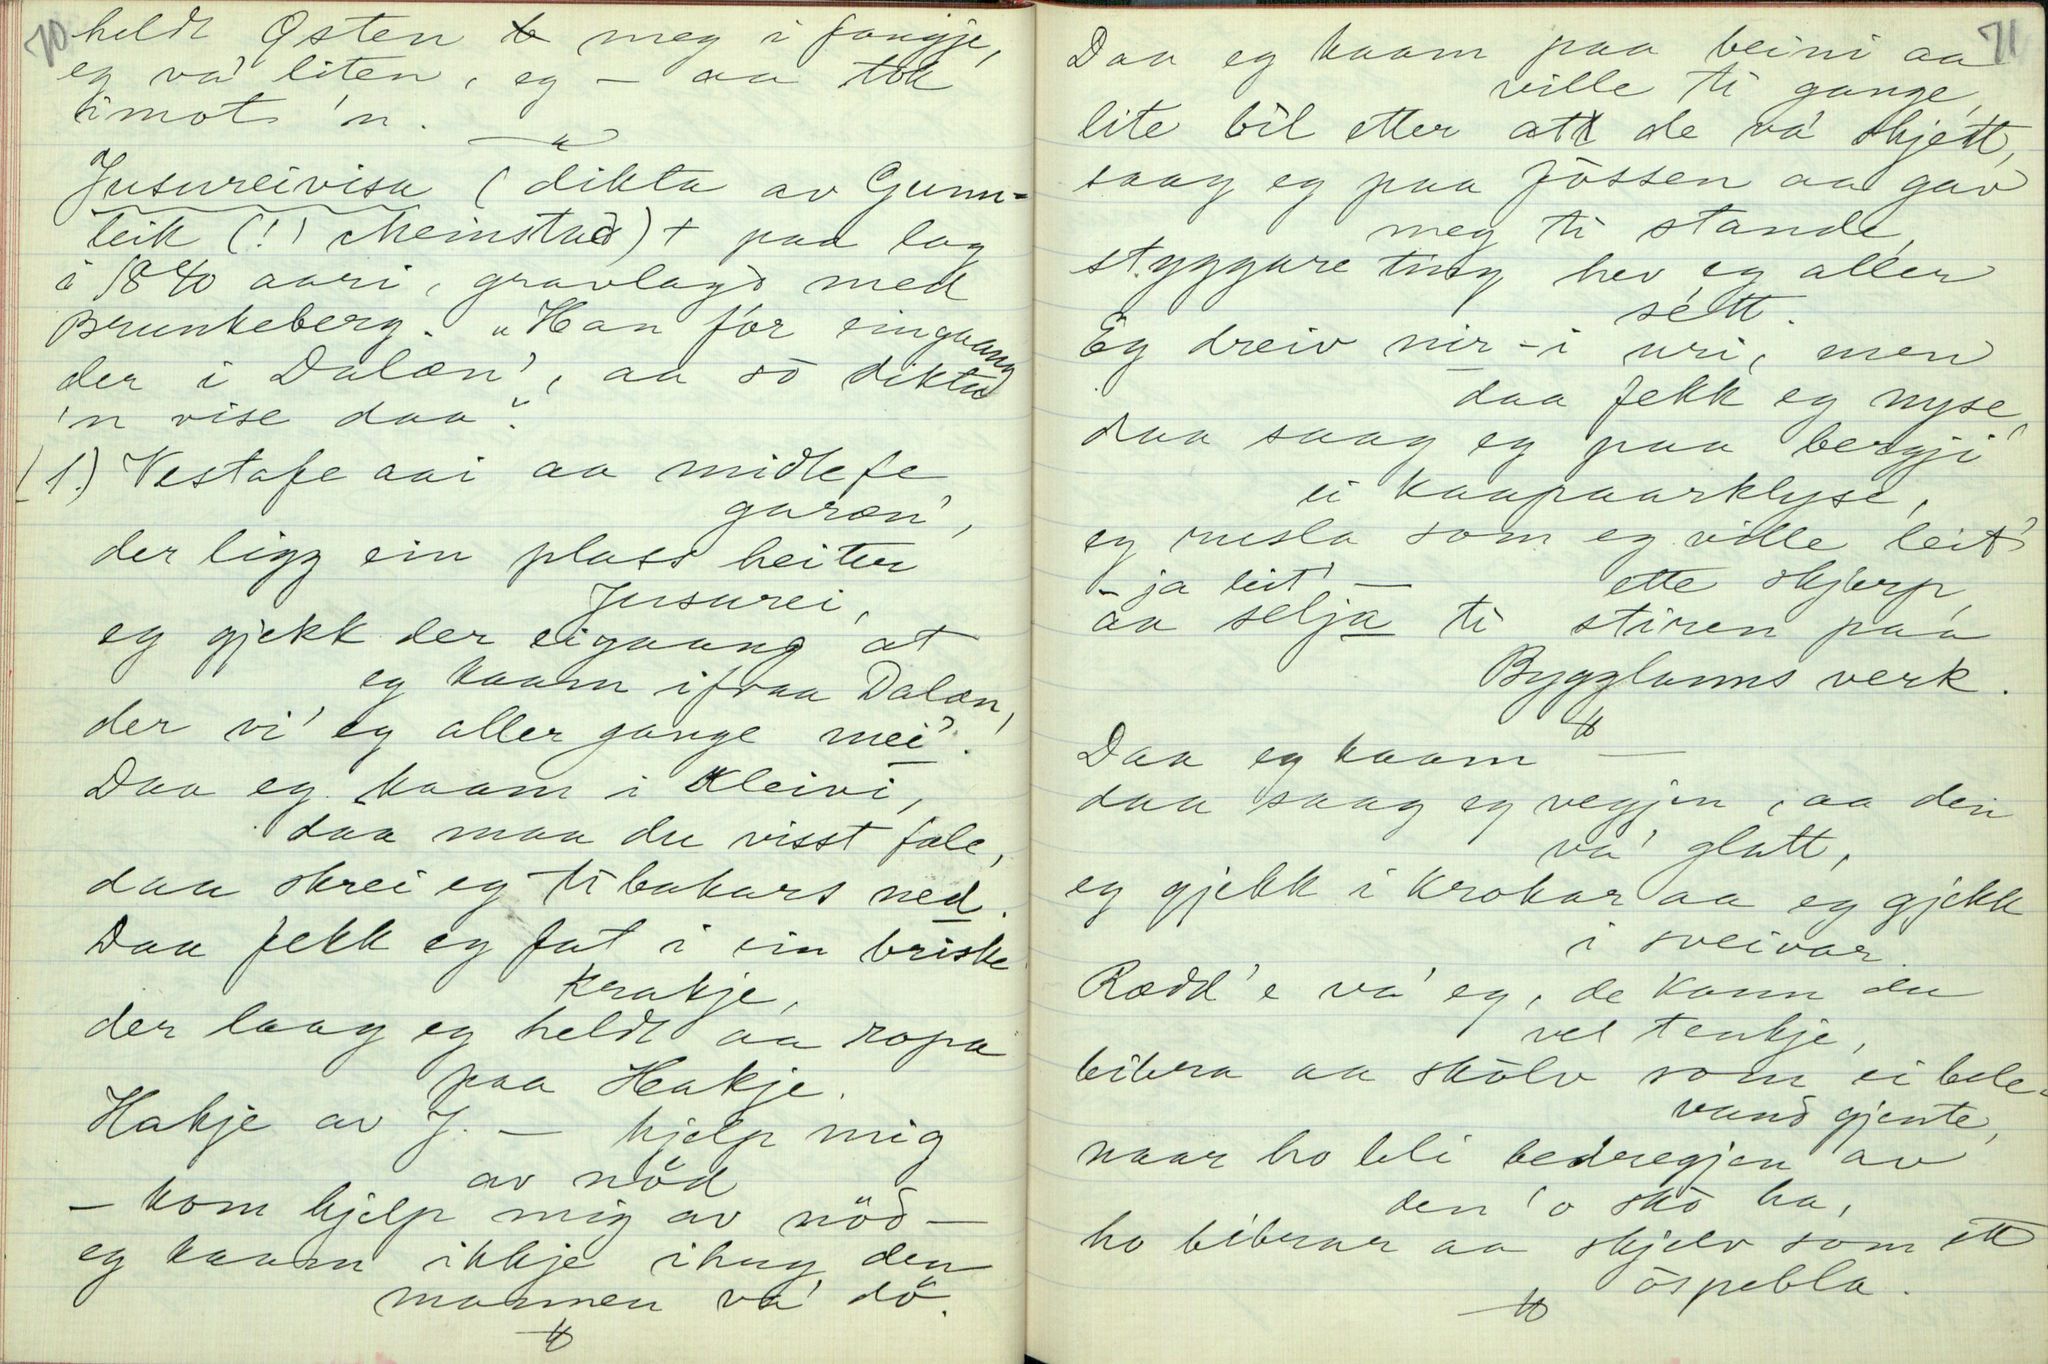 70
heldt Østen meg i fangje,
eg va' liten, eg - aa tok
imot 'n.
Jusureivisa (dikta av Gunn-
leik (!) Meinstad) + paa lag
i 1840 aari, gravlagd med
Brunkeberg. "Han for eingaang
der i Dalæn', aa so dikta
'n vise daa".
(1.) Vestafe aai aa midlefe
garæn',
der ligg ein plass heiter
Jusurei,
eg gjekk der eigaang at
eg kaam ifraa Dalæn,
der vi' eg aller gange mei'!
Daa eg kaam i Kleivi,
daa maa du visst fale,
daa skrei eg tibakars ned.
Daa fekk eg fat i ein briske
krakje,
der laag eg heldt aa ropa
paa Hakje.
Hakje av J. - hjelp mig
av nöd
- kom hjelp mig av nöd -
eg kaam ikkje ihug den
mannen va' dö.
71
Daa eg kaam paa beini aa
ville ti gange,
lite bil etter att de va' skjett,
saag eg paa fossen aa gav
meg ti stande,
styggare ting hev eg aller
sétt.
Eg dreiv nir-i uri, men
daa fekk eg nyse,
daa saag eg paa bergji
ei kaaparklyse,
eg rusla som eg ville leit'
- ja leit' - ette skjerp,
aa selja ti stiren paa
Bygglanns verk.
Daa eg kaam -
daa saag eg vegjen, aa den
va' glatt,
eg gjekk i krokar aa eg gjekk
i sveivar.
Rædd'e va' eg, de kann du
vel tenkje,
bibra aa skolv som ei bele-
vand gjente,
naar ho bli bedregjen av
den 'o sko ha,
ho bibrar aa skjelv som ett
ospebla.